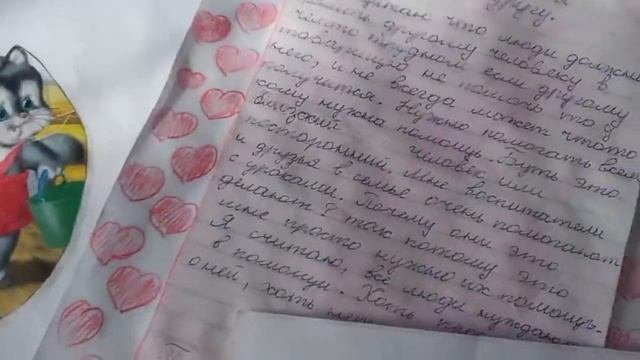 другу.
что люди должны
помочь другому человеку в
чём-то трудном если другому
товарищу не помочь то у
него, и не всегда может что то
получится. Нужно помогать всем
кому нужна помощь. Будь это
близкий человек или
посторонний. Мне воспитатели
и друзья в семье очень помогают
с уроками. Почему они это
делают? так потому это
мне просто нужно их помощь.
Я считаю, все люди нуждают
в помощи. Хоть
о ней, хоть